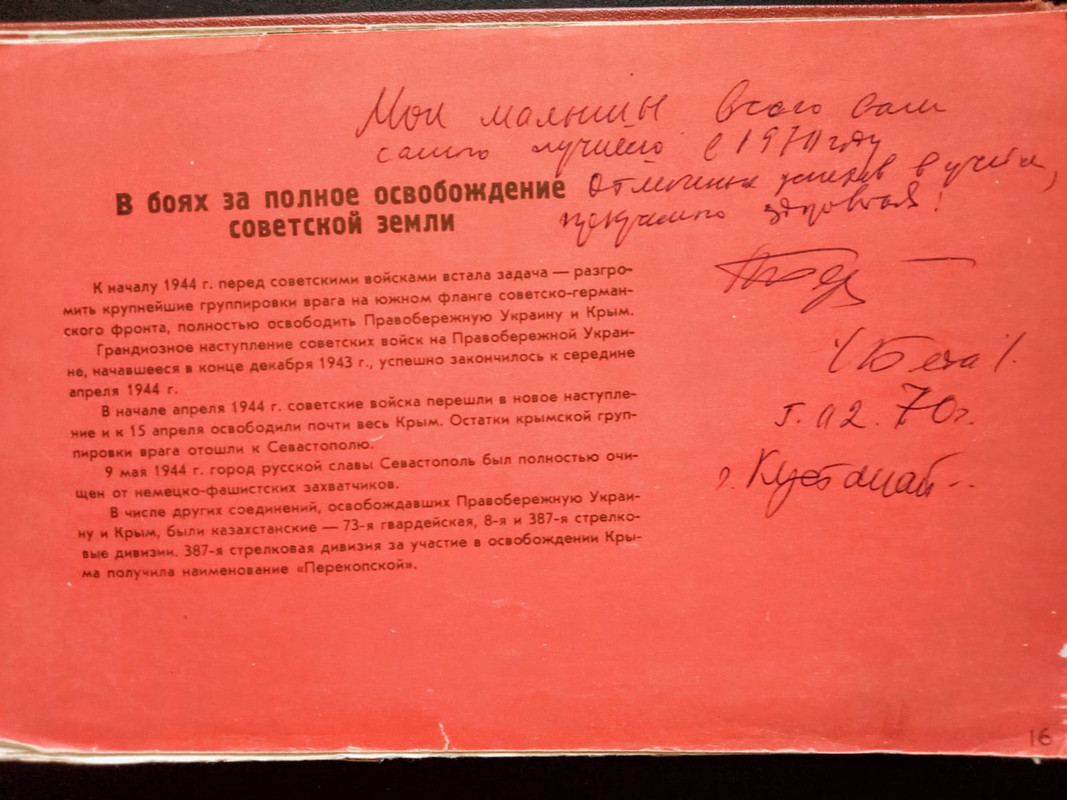 Мои малыши всего вам
самого лучшего в 1970 году
Отличных успехов в учебе,
прекрасного здоровья!
В боях за полное освобождение
советской земли
К началу 1944 г. перед советскими войсками встала задача — разгро-
мить крупнейшие группировки врага на южном фланге советско-герман-
ского фронта, полностью освободить Правобережную Украину и Крым.
Грандиозное наступление советских войск на Правобережной Украи-
не, начавшееся в конце декабря 1943 г., успешно закончилось к середине
апреля 1944 г.
В начале апреля 1944 г. советские войска перешли в новое наступле-
ние и к 15 апреля освободили почти весь Крым. Остатки крымской груп-
пировки врага отошли к Севастополю.
9 мая 1944 г. город русской славы Севастополь был полностью очи-
щен от немецко-фашистских захватчиков.
В числе других соединений, освобождавших Правобережную Украи-
ну и Крым, были казахстанские — 73-я гвардейская, 8-я и 387-я стрелко-
вые дивизии. 387-я стрелковая дивизия за участие в освобождении Кры-
ма получила наименование «Перекопской».
70г.
г. Кустанай
16